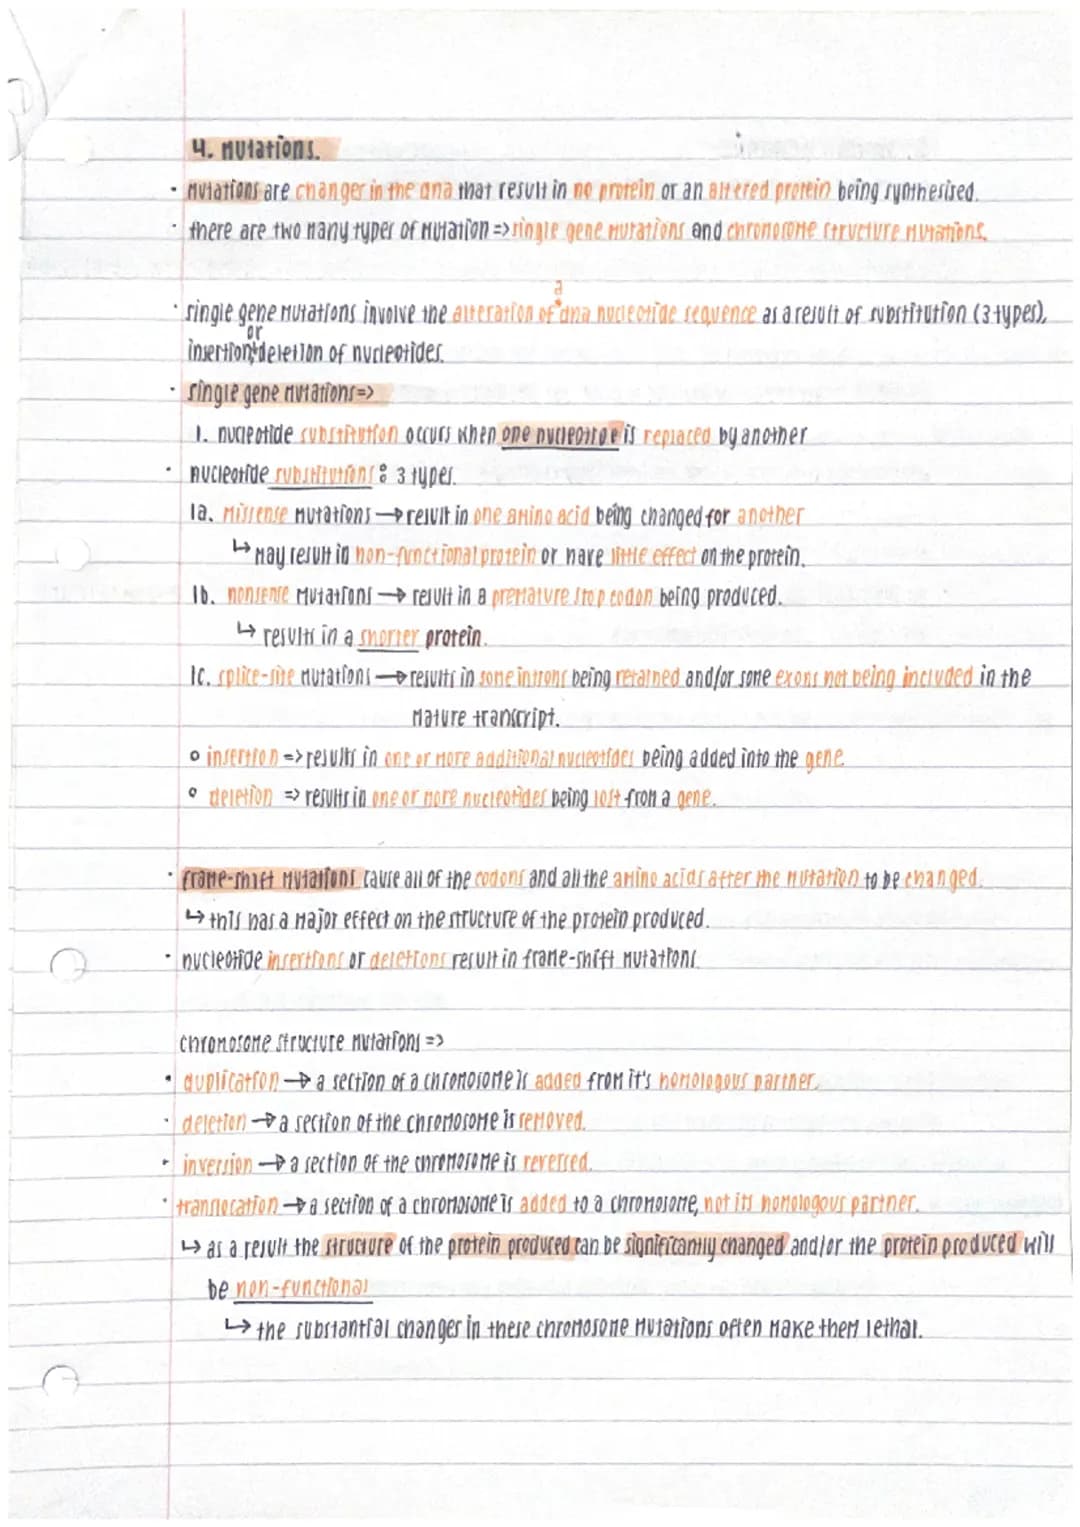 4. Mutations.
· Mutations are changes in the dna that result in no protein or an altered protein being synthesised.
· there are two many types of mutation => single gene mutations and chromosome structure mutations.
a
· single gene mutations involve the alteration of dna nucleotide sequence as a result of substitution (3 types),
or
insertion/deletion of nucleotides.
· single gene mutations =>
1. nucleotide substitution occurs when one nucleotide is replaced by another
· nucleotide substitutions : 3 types.
1a. missense mutations → result in one amino acid being changed for another
↳ may result in non-functional protein or have little effect on the protein.
1b. nonsense mutations → result in a premature stop codon being produced.
↳ results in a shorter protein.
1c. splice-site mutations → results in some introns being retained and/or some exons not being included in the
mature transcript.
o insertion => results in one or more additional nucleotides being added into the gene.
o deletion => results in one or more nucleotides being lost from a gene.
· frame-shift mutations cause all of the codons and all the amino acids after the mutation to be changed.
↳ this has a major effect on the structure of the protein produced.
· nucleotide insertions or deletions result in frame-shift mutations
chromosome structure mutations =>
· duplication → a section of a chromosome is added from it's homologous partner.
· deletion → a section of the chromosome is removed.
· inversion → a section of the chromosome is reversed.
· translocation → a section of a chromosome is added to a chromosome, not its homologous partner.
↳ as a result the structure of the protein produced can be significantly changed and/or the protein produced will
be non-functional
↳ the substantial changes in these chromosome mutations often make them lethal.